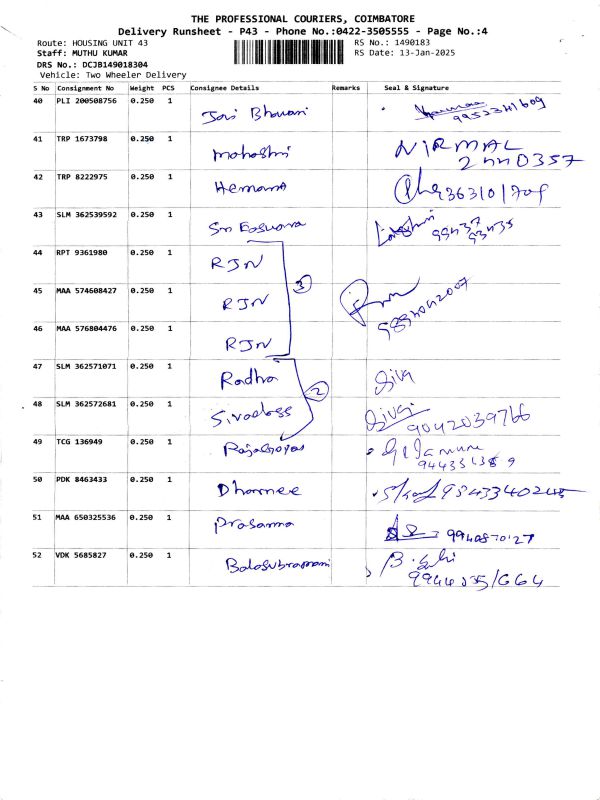 THE PROFESSIONAL COURIERS, COIMBATORE
Delivery Runsheet - P43 - Phone No.:0422-3505555 - Page No.:4
Route: HOUSING UNIT 43 RS No.: 1490183
Staff: MUTHU KUMAR RS Date: 13-Jan-2025
DRS No.: DCJB149018304
Vehicle: Two Wheeler Delivery
S No Consignment No Weight PCS Consignee Details Remarks Seal & Signature
40 PLI 200508756 0.250 1 Bhavani
41 TRP 1673798 0.250 1 NIRMAL
42 TRP 8222975 0.250 1 Hemama
43 SLM 362539592 0.250 1 Sri Easwara
44 RPT 9361980 0.250 1 RJN
45 MAA 574608427 0.250 1 RJN 3 9894042007
46 MAA 576804476 0.250 1 RJN
47 SLM 362571071 0.250 1 Radha Siva
48 SLM 362572681 0.250 1 Sivadass 2 9042039766
49 TCG 136949 0.250 1 Rajagopal
50 PDK 8463433 0.250 1 Dharnee
51 MAA 650325536 0.250 1 Prasanna
52 VDK 5685827 0.250 1 Balasubramani